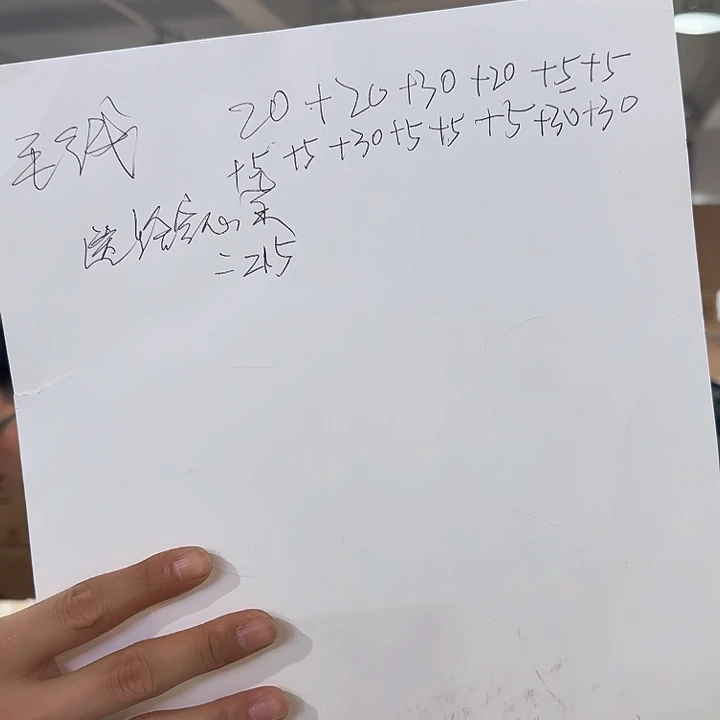 毛线 20+20+30+20+5+5
+5+5+30+5+5+5+30+30
=215